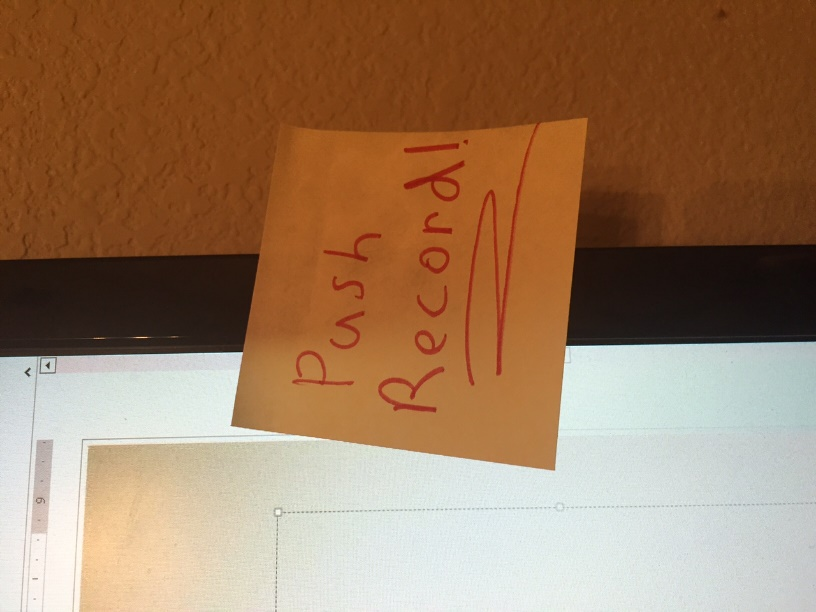 Push
Record!
6